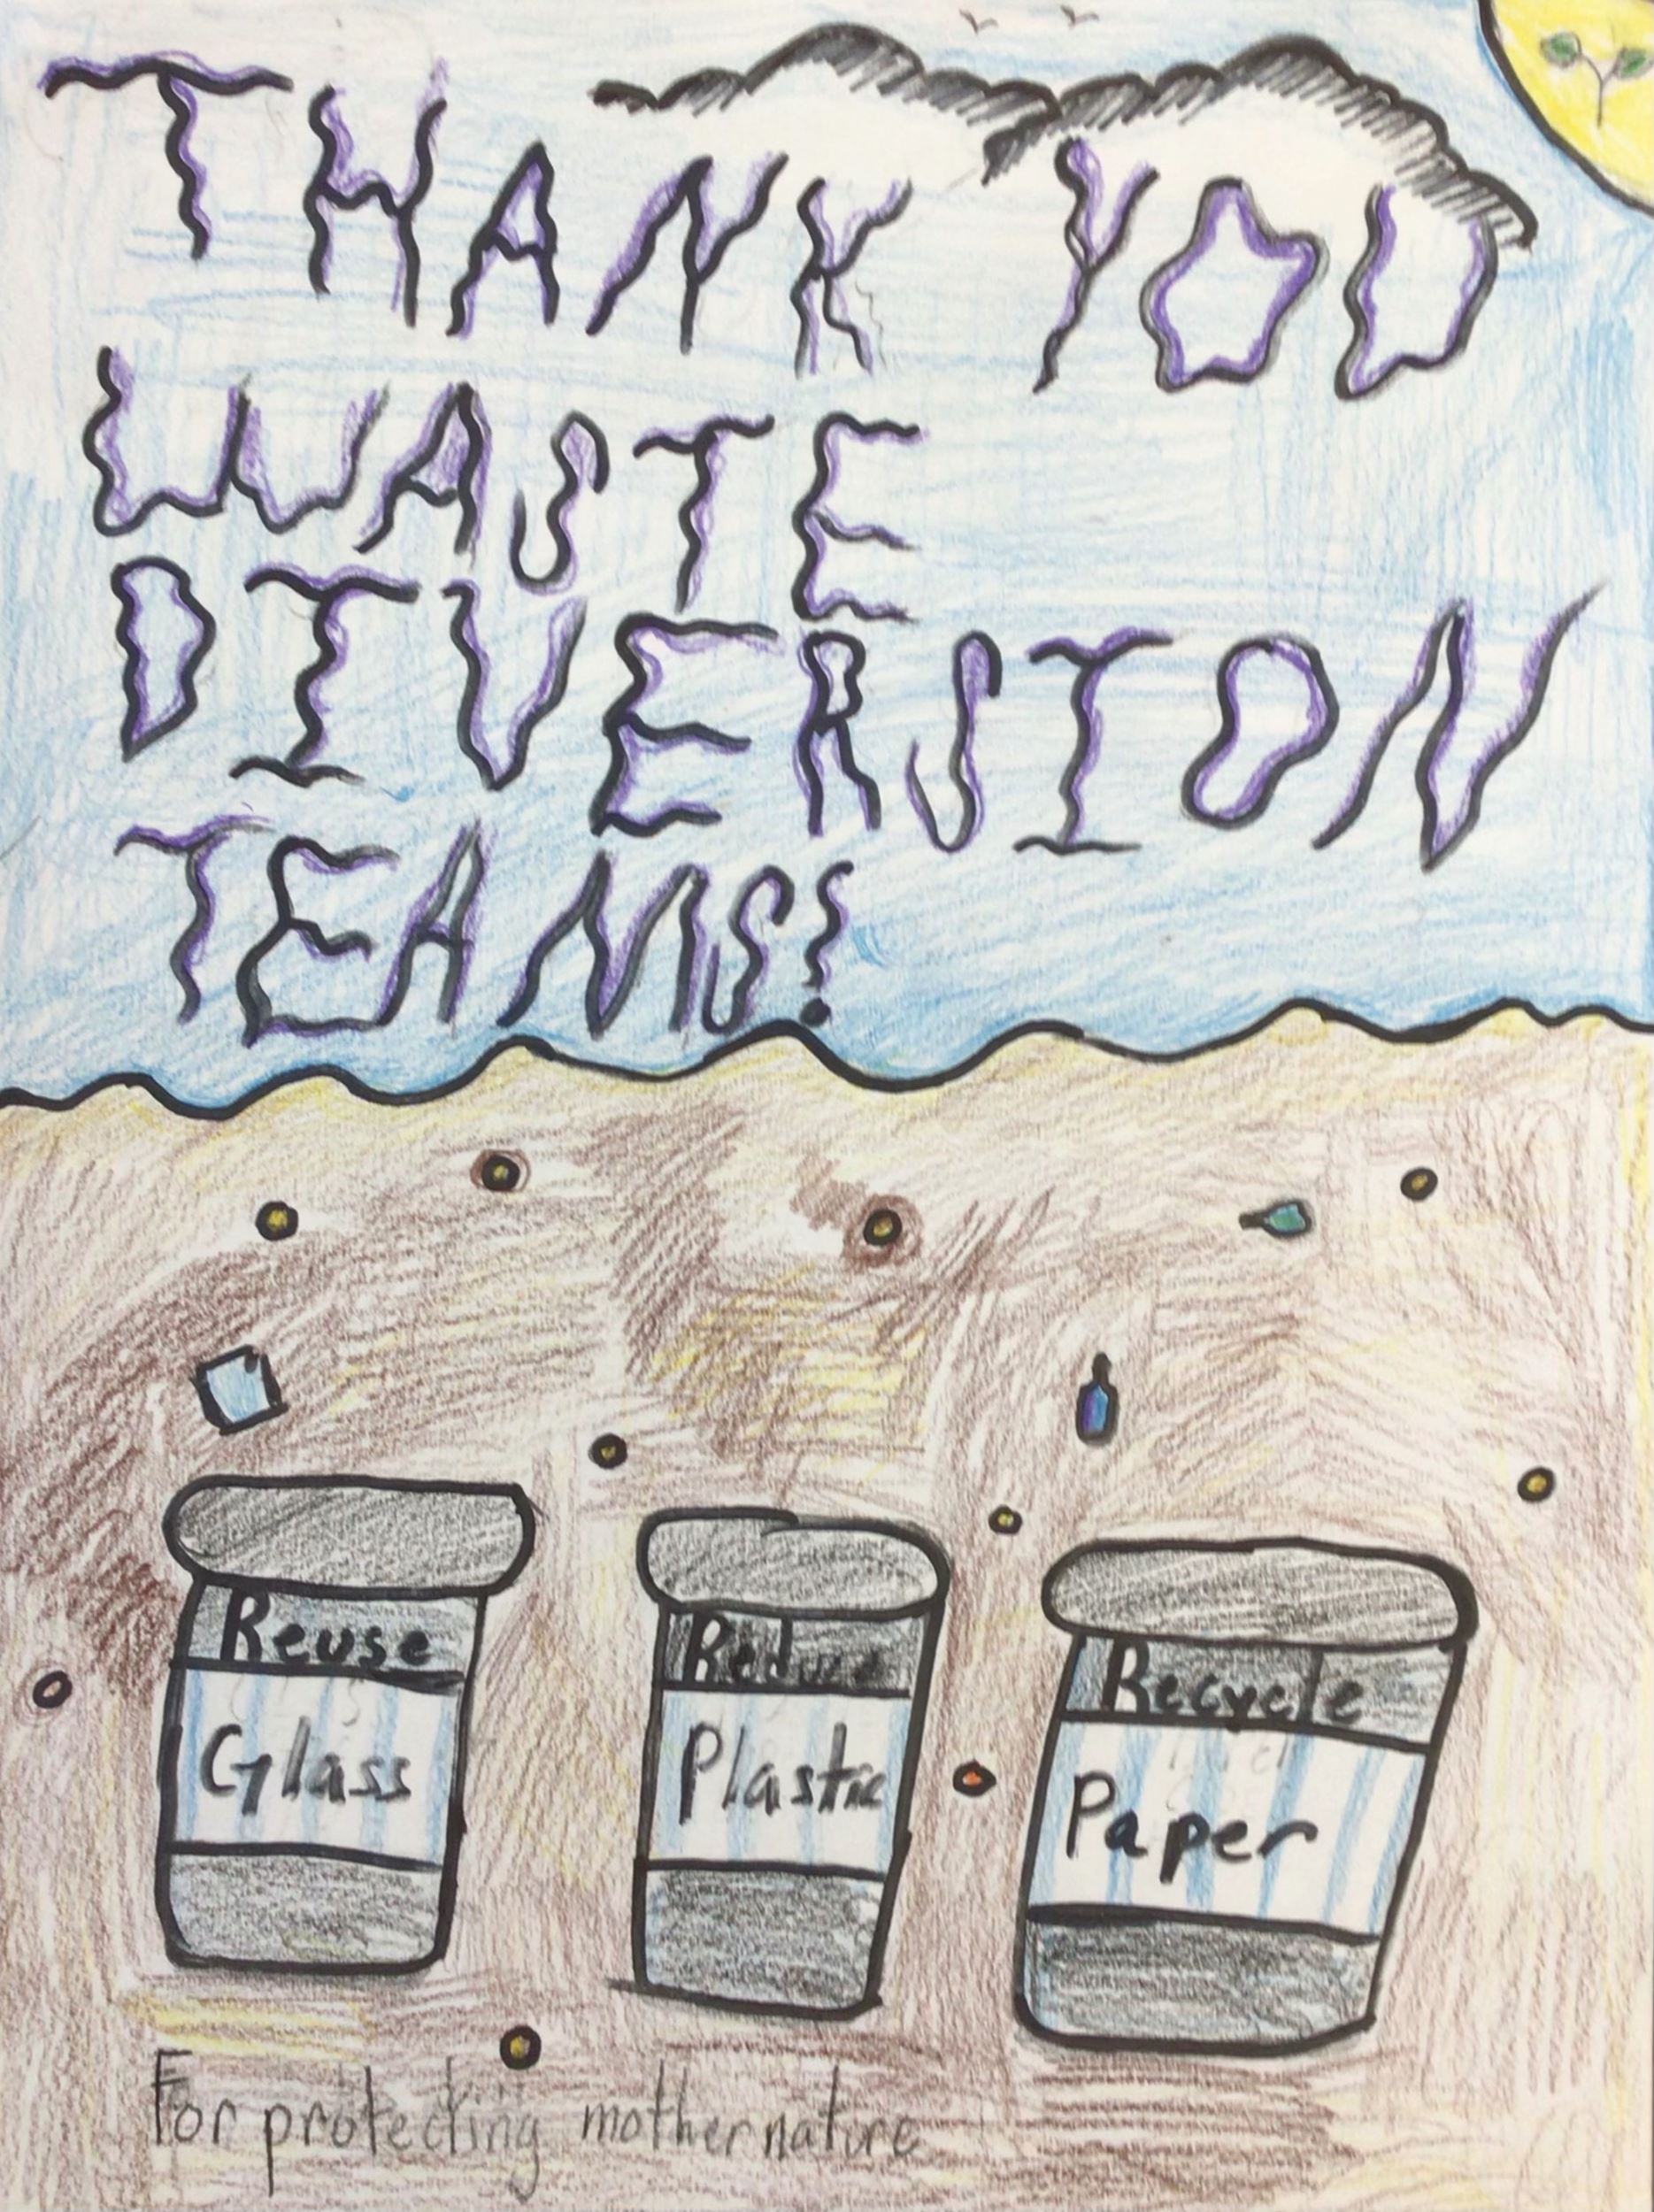 THANK YOU
WASTE
DIVERSION
TEAMS!
Reuse
Glass
Reduce
Plastic
Recycle
Paper
For protecting mother nature